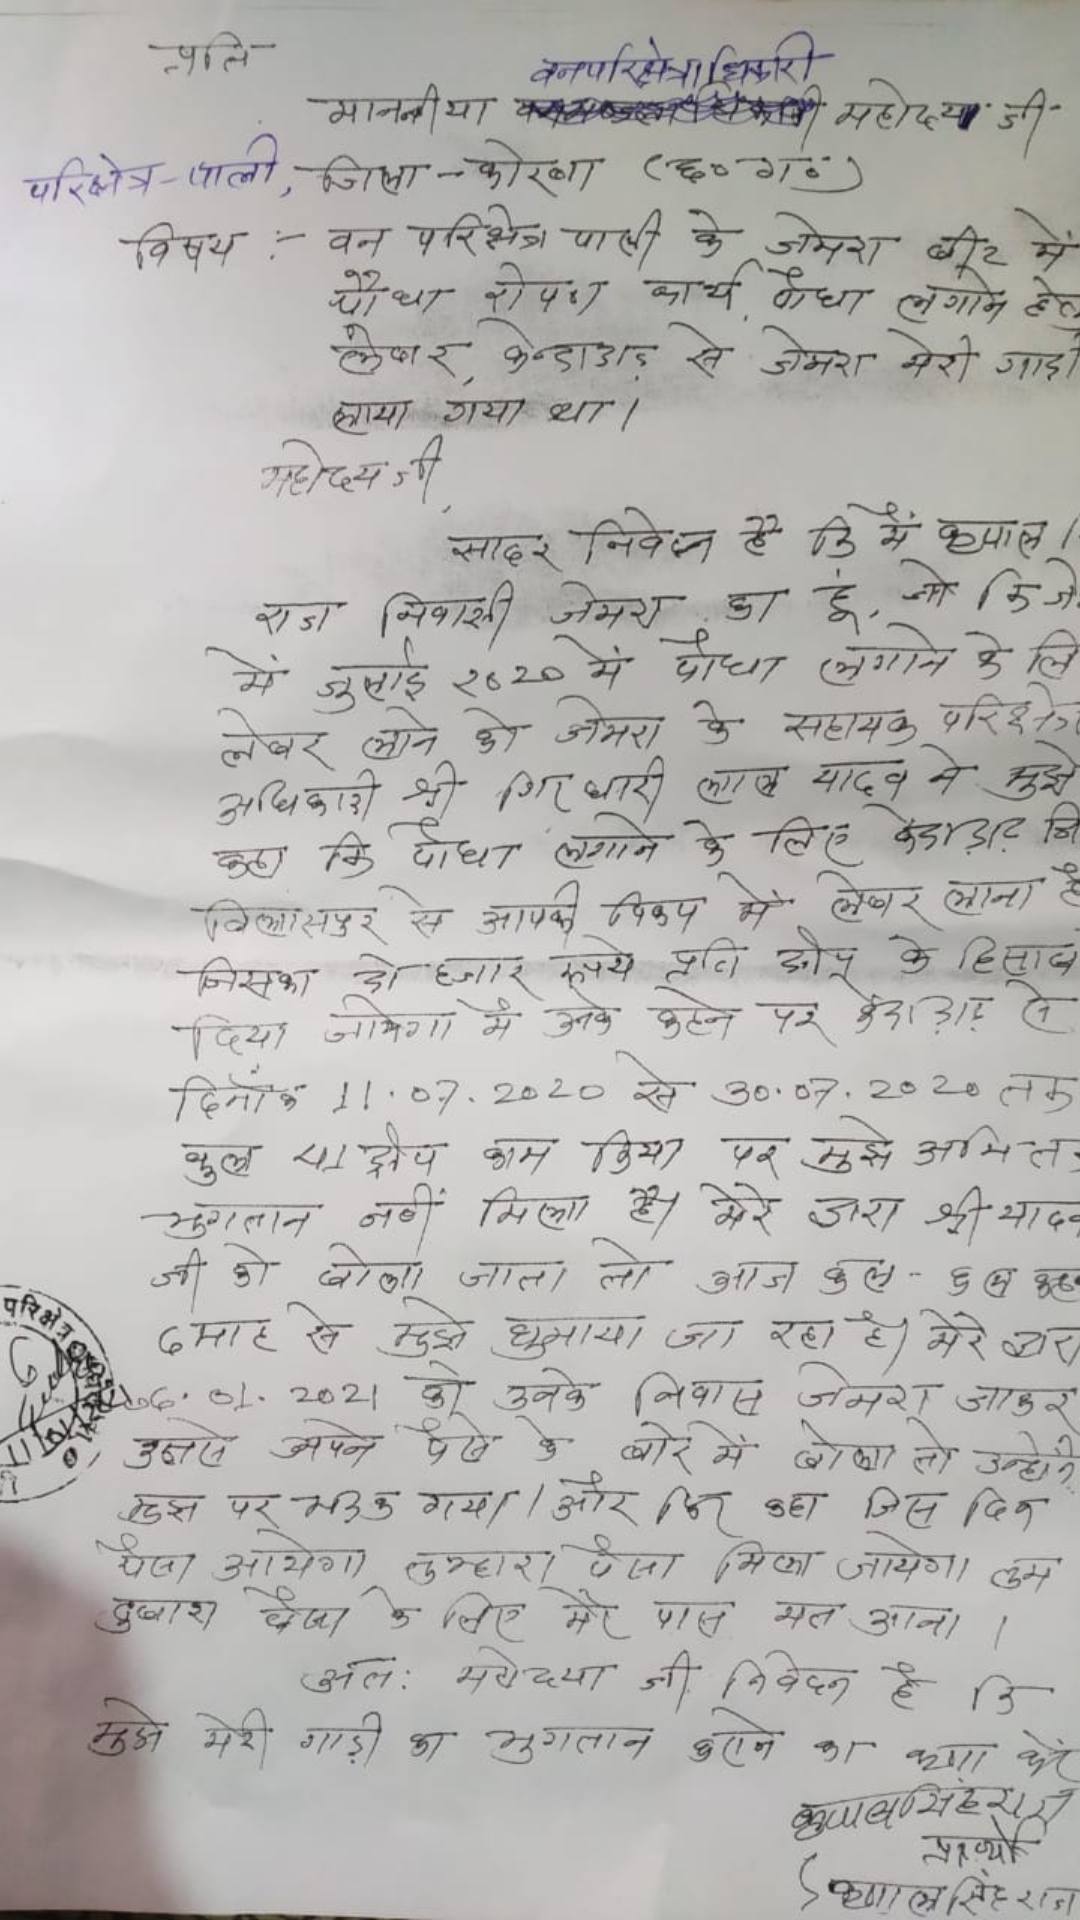 प्रति
वनपरिक्षेत्राधिकारी
माननीया महोदया जी
परिक्षेत्र-पाली, जिला-कोरबा (छ०ग०)
विषय :- वन परिक्षेत्र पाली के जेमरा बीट में
पौधा रोपण कार्य, पौधा लगाने हेतु
लेबर, केन्दाडाड़ से जेमरा मेरी गाड़ी
लाया गया था।
महोदय जी,
सादर निवेदन है कि मैं कृपाल
राज निवासी जेमरा का हूं, जो कि जे
में जुलाई २०20 में पौधा लगाने के लि
लेबर लाने को जेमरा के सहायक परिक्षेत्र
अधिकारी श्री गिरधारी लाल यादव ने मुझे
कहा कि पौधा लगाने के लिए जि
बिलासपुर से आपकी पिकप में लेबर लाना है
जिसका दो हजार रूपये प्रति क्षेप के हिसाब
दिया जायेगा मैं उनके कहने पर से
दिनाँक 11.07.2020 से 30.07.2020 तक
कुल 41 क्षेप काम किया पर मुझे अभी त
भुगतान नहीं मिला है। मेरे द्वारा श्री यादव
जी को बोला जाता तो आज कल - कल कहक
6 माह से मुझे घुमाया जा रहा है। मेरे द्वारा
परिक्षेत्र
06.01.2021 को उनके निवास जेमरा जाकर
उनसे अपने पैसे के बारे में बोला तो उन्होंने
मुझ पर भड़क गया। और फिर कहा जिस दिन
पैसा आयेगा तुम्हारा पैसा मिल जायेगा तुम
दुबारा पैसा के लिए मेरे पास मत आना।
अत: महोदया जी निवेदन है कि
मुझे मेरी गाड़ी का भुगतान कराने का कृपा करें
कृपाल सिंह राज
प्रार्थी
कृपाल सिंह राज